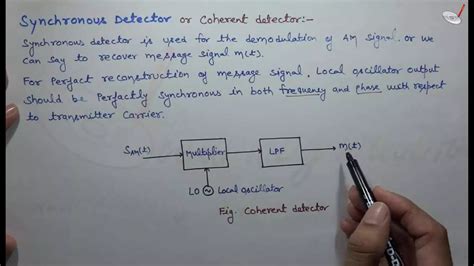 Synchronous Detector or Coherent detector:-
Synchronous detector is used for the demodulation of AM signal. or we
can say to recover message signal m(t).
For Perfact reconstruction of message signal, Local oscillator output
Should be Perfactly Synchronous in both frequency and phase with respect
to transmitter Carrier.
SAM(t) Multiplier LPF m(t)
LO Local oscillator
Fig: Coherent detector